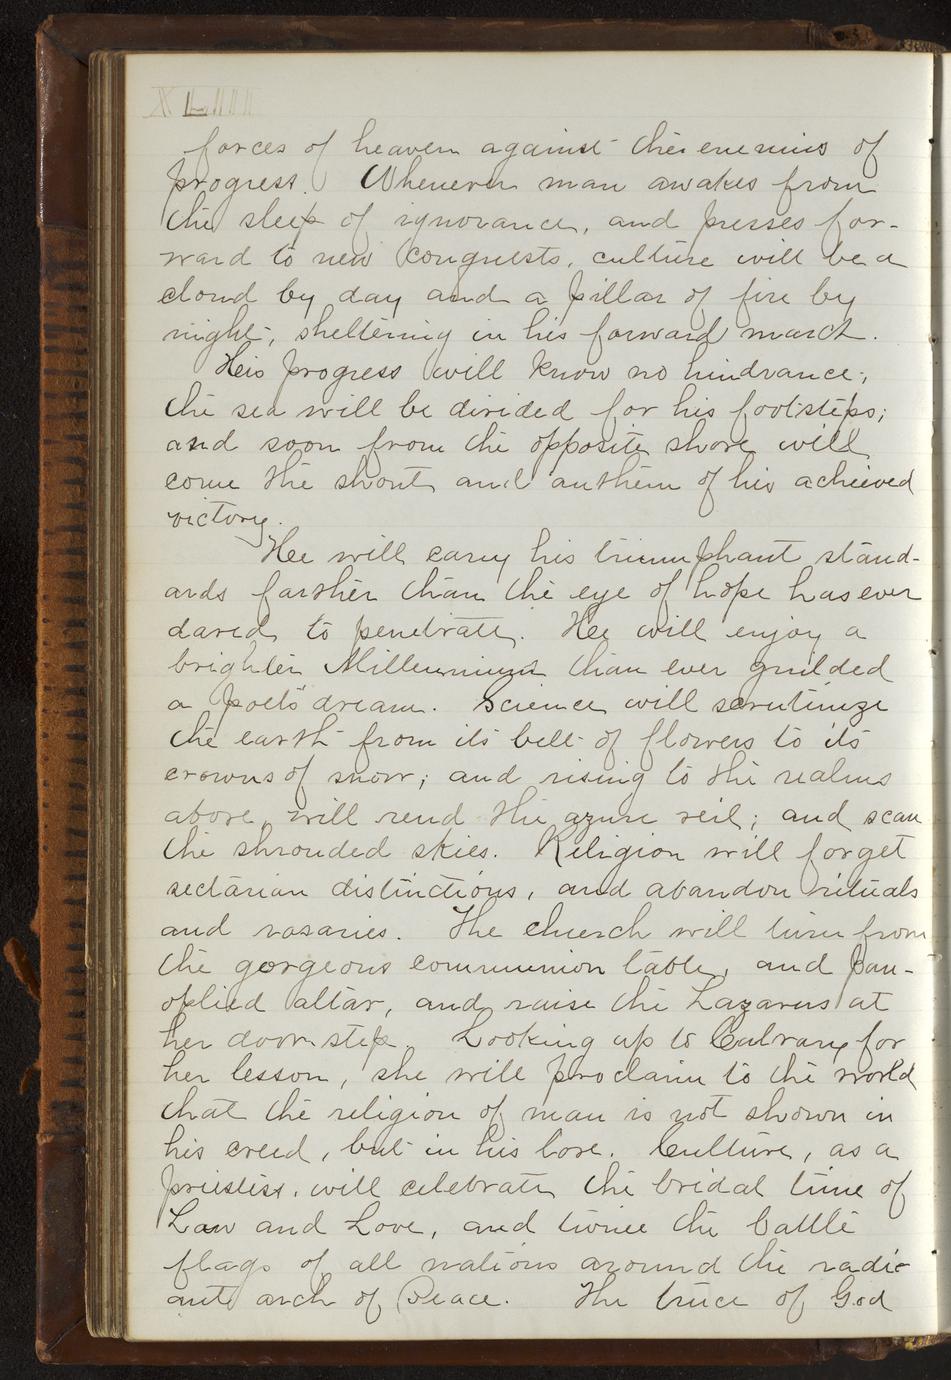 XLIII
forces of heaven against the enemies of
progress. Whenever man awakes from
the sleep of ignorance, and presses for-
ward to new conquests, culture will be a
cloud by day and a pillar of fire by
night, sheltering in his forward march.
His progress will know no hindrance;
the sea will be divided for his footsteps;
and soon from the opposite shore will
come the shout and anthem of his achieved
victory.
He will carry his triumphant stand-
ards farther than the eye of hope has ever
dared to penetrate. He will enjoy a
brighter Millennium than ever guilded
a poet's dream. Science will scrutinize
the earth from its belt of flowers to its
crowns of snow; and rising to the realms
above, will rend the azure veil; and scan
the shrouded skies. Religion will forget
sectarian distinctions, and abandon rituals
and rosaries. The church will turn from
the gorgeous communion table, and pan-
oplied altar, and raise the Lazarus at
her door step. Looking up to Calvary for
her lesson, she will proclaim to the world
that the religion of man is not shown in
his creed, but in his love. Culture, as a
priestess, will celebrate the bridal time of
Law and Love, and twine the battle
flags of all nations around the radi-
ant arch of Peace. The truce of God